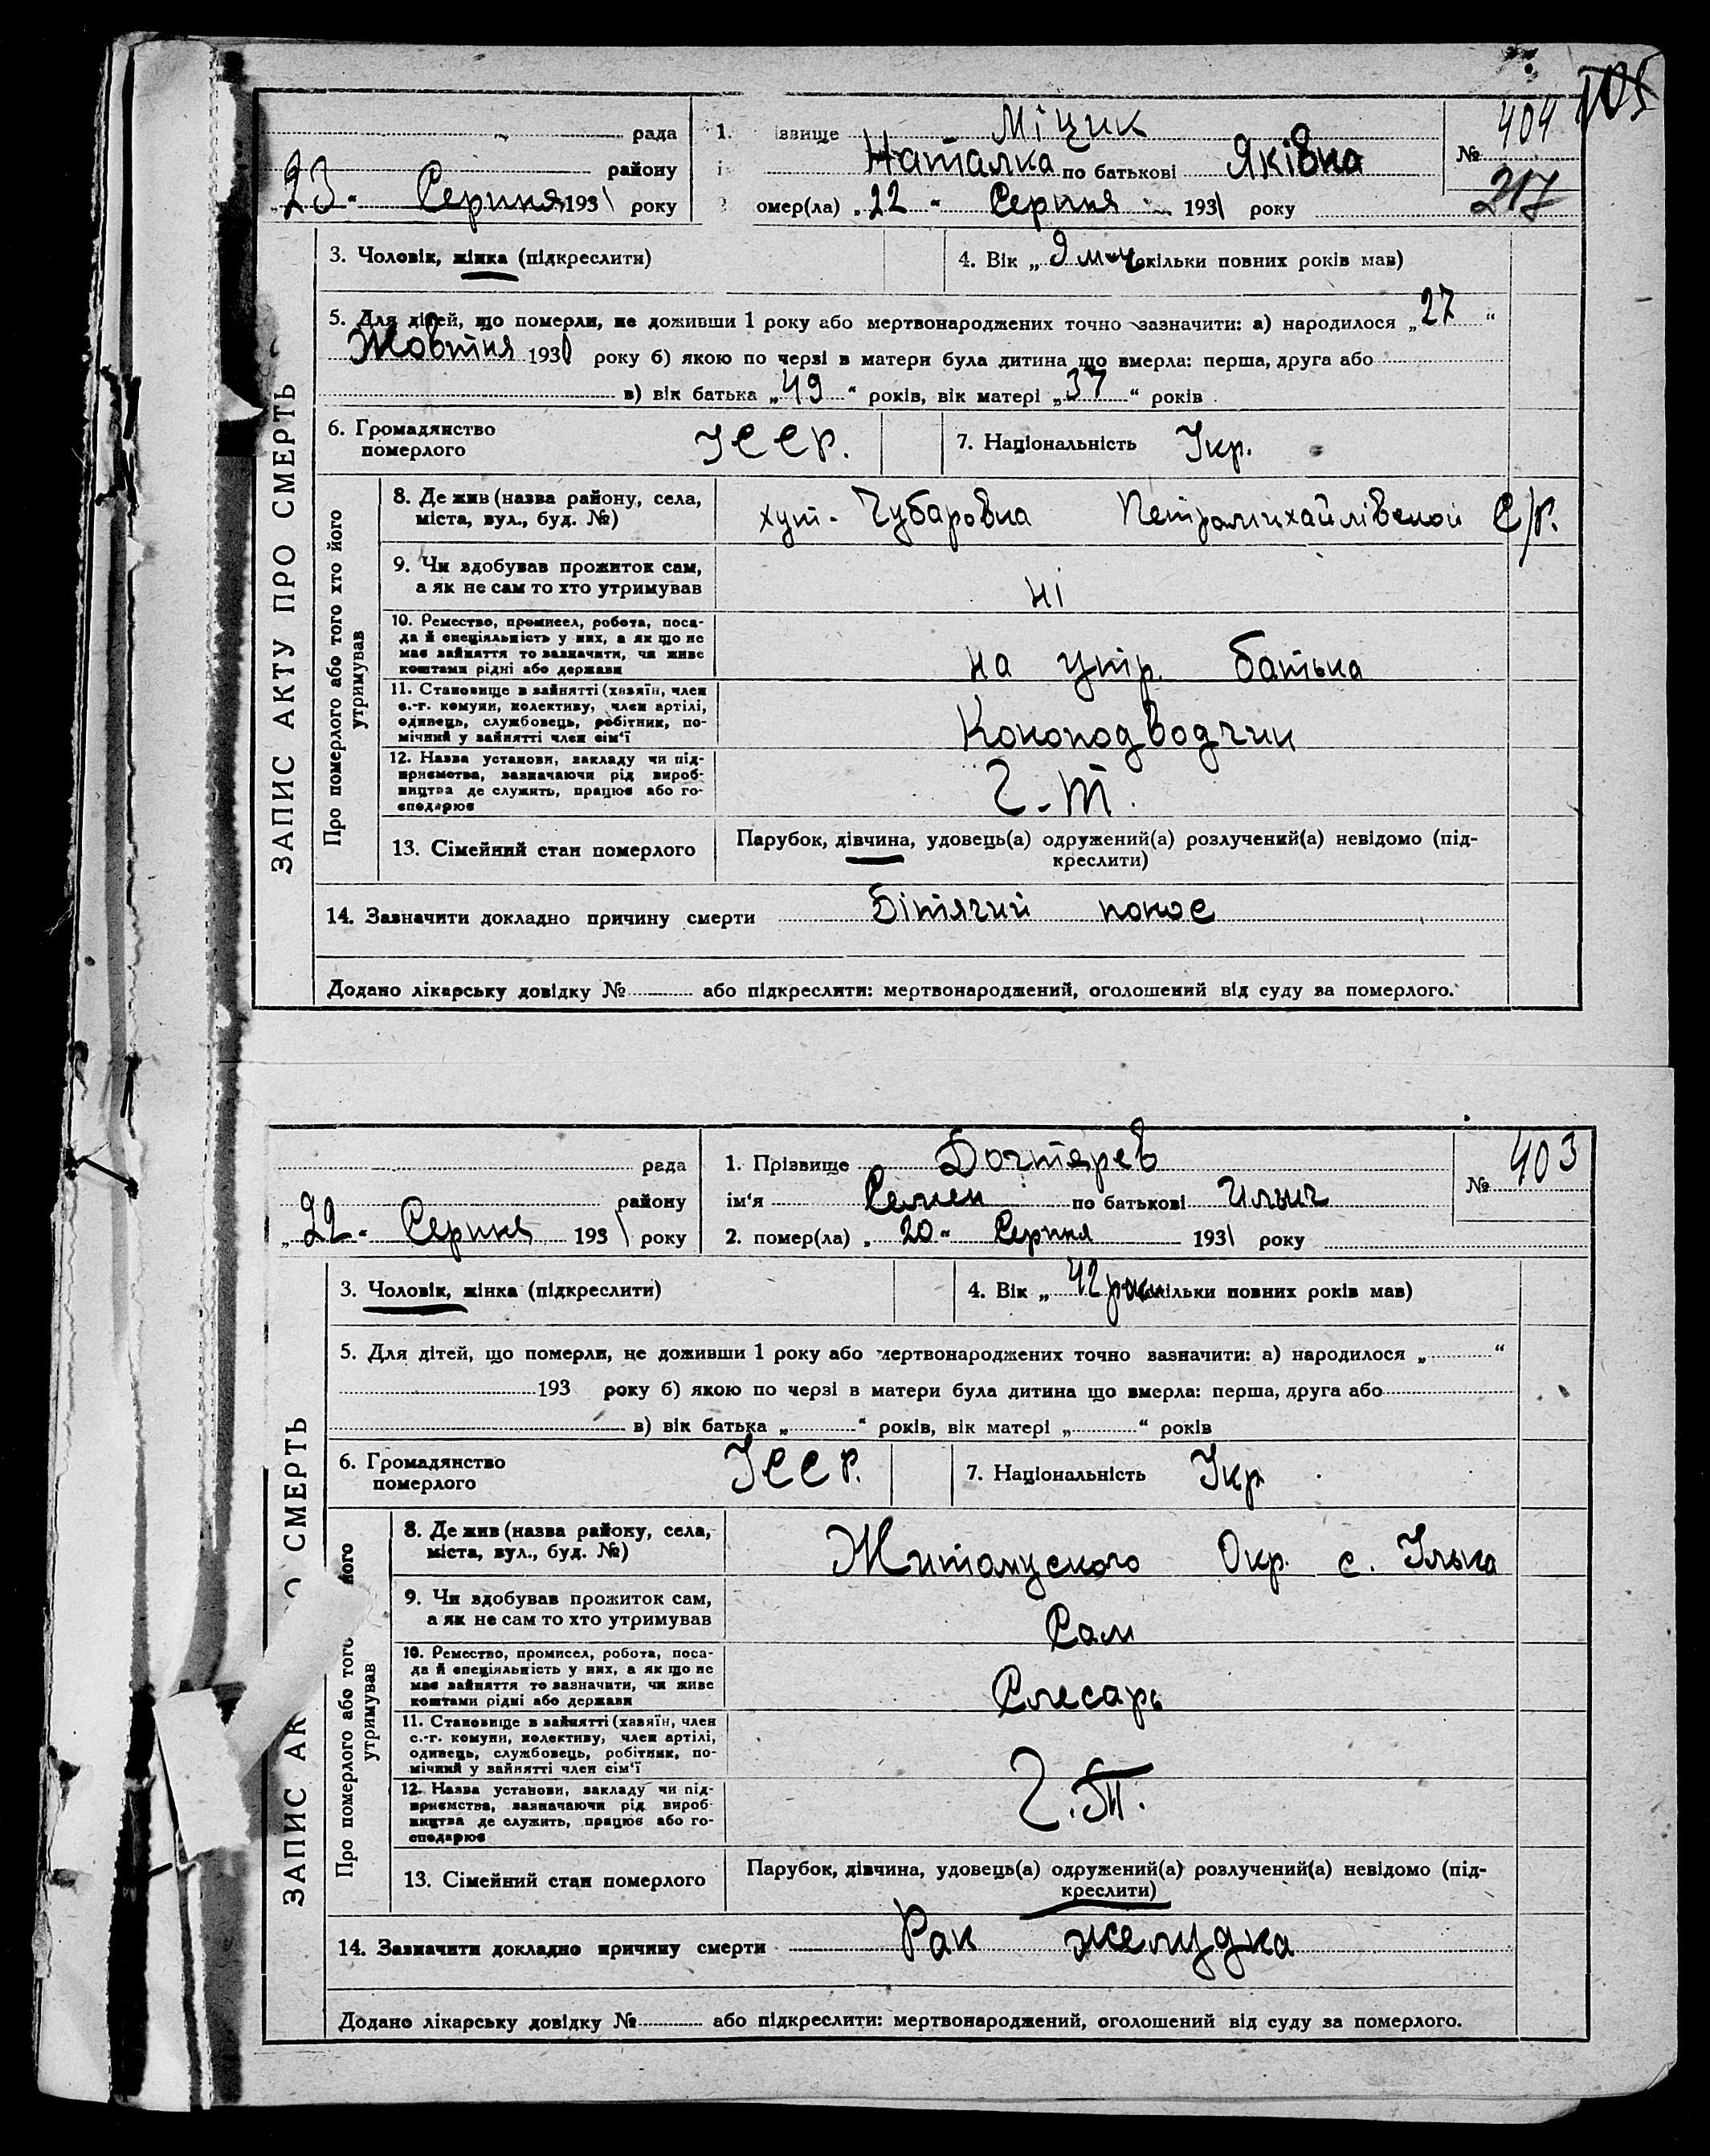 105
404
рада 1. ізвище Міцик
району Наталка по батькові Яківна №
"23" Серпня 1931 року омер(ла) "22" Серпня 1931 року 217
3. Чоловік, жінка (підкреслити) 4. Вік „ 9 м-ц скільки повних років мав)
5. Для дітей, що померли, не доживши 1 року або мертвонароджених точно зазначити: а) народилося „27“
Жовтня 1930 року б) якою по черзі в матери була дитина що вмерла: перша, друга або
в) вік батька „49“ років, вік матері „37“ років
6. Громадянство
померлого
УССР.
7. Національність Укр.
ЗАПИС АКТУ ПРО СМЕРТЬ
Про померлого або того хто його
утримував
8. Де жив (назва району, села,
міста, вул., буд. №)
хут. Чубаровка Петромихайлівской С/Р.
9. Чи здобував прожиток сам,
а як не сам то хто утримував
ні
10. Ремество, промисел, робота, поса-
да й спеціяльність у них, а як що не
має зайняття то зазначити, чи живе
коштами рідні або держави
на утр. батька
11. Становище в зайнятті (хазяїн, член
с.-г. комуни, колективу, член артілі,
одинець, службовець, робітник, по-
мічний у зайнятті член сім'ї
Коноподводчик
12. Назва установи, закладу чи під-
приємства, зазначаючи рід вироб-
ництва де служить, працює або го-
сподарює
13. Сімейний стан померлого
Парубок, дівчина, удовець(а) одружений(а) розлучений(а) невідомо (під-
креслити)
14. Зазначити докладно причину смерти Дітячий понос
Додано лікарську довідку № або підкреслити: мертвонароджений, оголошений від суду за померлого.
рада 1. Прізвище Дочтярев № 403
району ім'я Семен по батькові Ильич
„22“ Серпня 1931 року 2. помер(ла) „20“ Серпня 1931 року
3. Чоловік, жінка (підкреслити) 4. Вік „ 42 роки скільки повних років мав)
5. Для дітей, що померли, не доживши 1 року або мертвонароджених точно зазначити: а) народилося „ “
193 року б) якою по черзі в матери була дитина що вмерла: перша, друга або
в) вік батька „ “ років, вік матері „ “ років
6. Громадянство
померлого
УССР.
7. Національність Укр
ЗАПИС АК О СМЕРТЬ
Про померлого або того його
утримував
8. Де жив (назва району, села,
міста, вул., буд. №)
Житомуского Окр. с.
9. Чи здобував прожиток сам,
а як не сам то хто утримував
Сам
10. Ремество, промисел, робота, поса-
да й спеціяльність у них, а як що не
має зайняття то зазначити, чи живе
коштами рідні або держави
Слесарь
11. Становище в зайнятті (хазяїн, член
с.-г. комуни, колективу, член артілі,
одинець, службовець, робітник, по-
мічний у зайнятті член сім'ї
12. Назва установи, закладу чи під-
приємства, зазначаючи рід вироб-
ництва де служить, працює або го-
сподарює
13. Сімейний стан померлого
Парубок, дівчина, удовець(а) одружений(а) розлучений(а) невідомо (під-
креслити)
14. Зазначити докладно причину смерти Рак желудка
Додано лікарську довідку № або підкреслити: мертвонароджений, оголошений від суду за померлого.